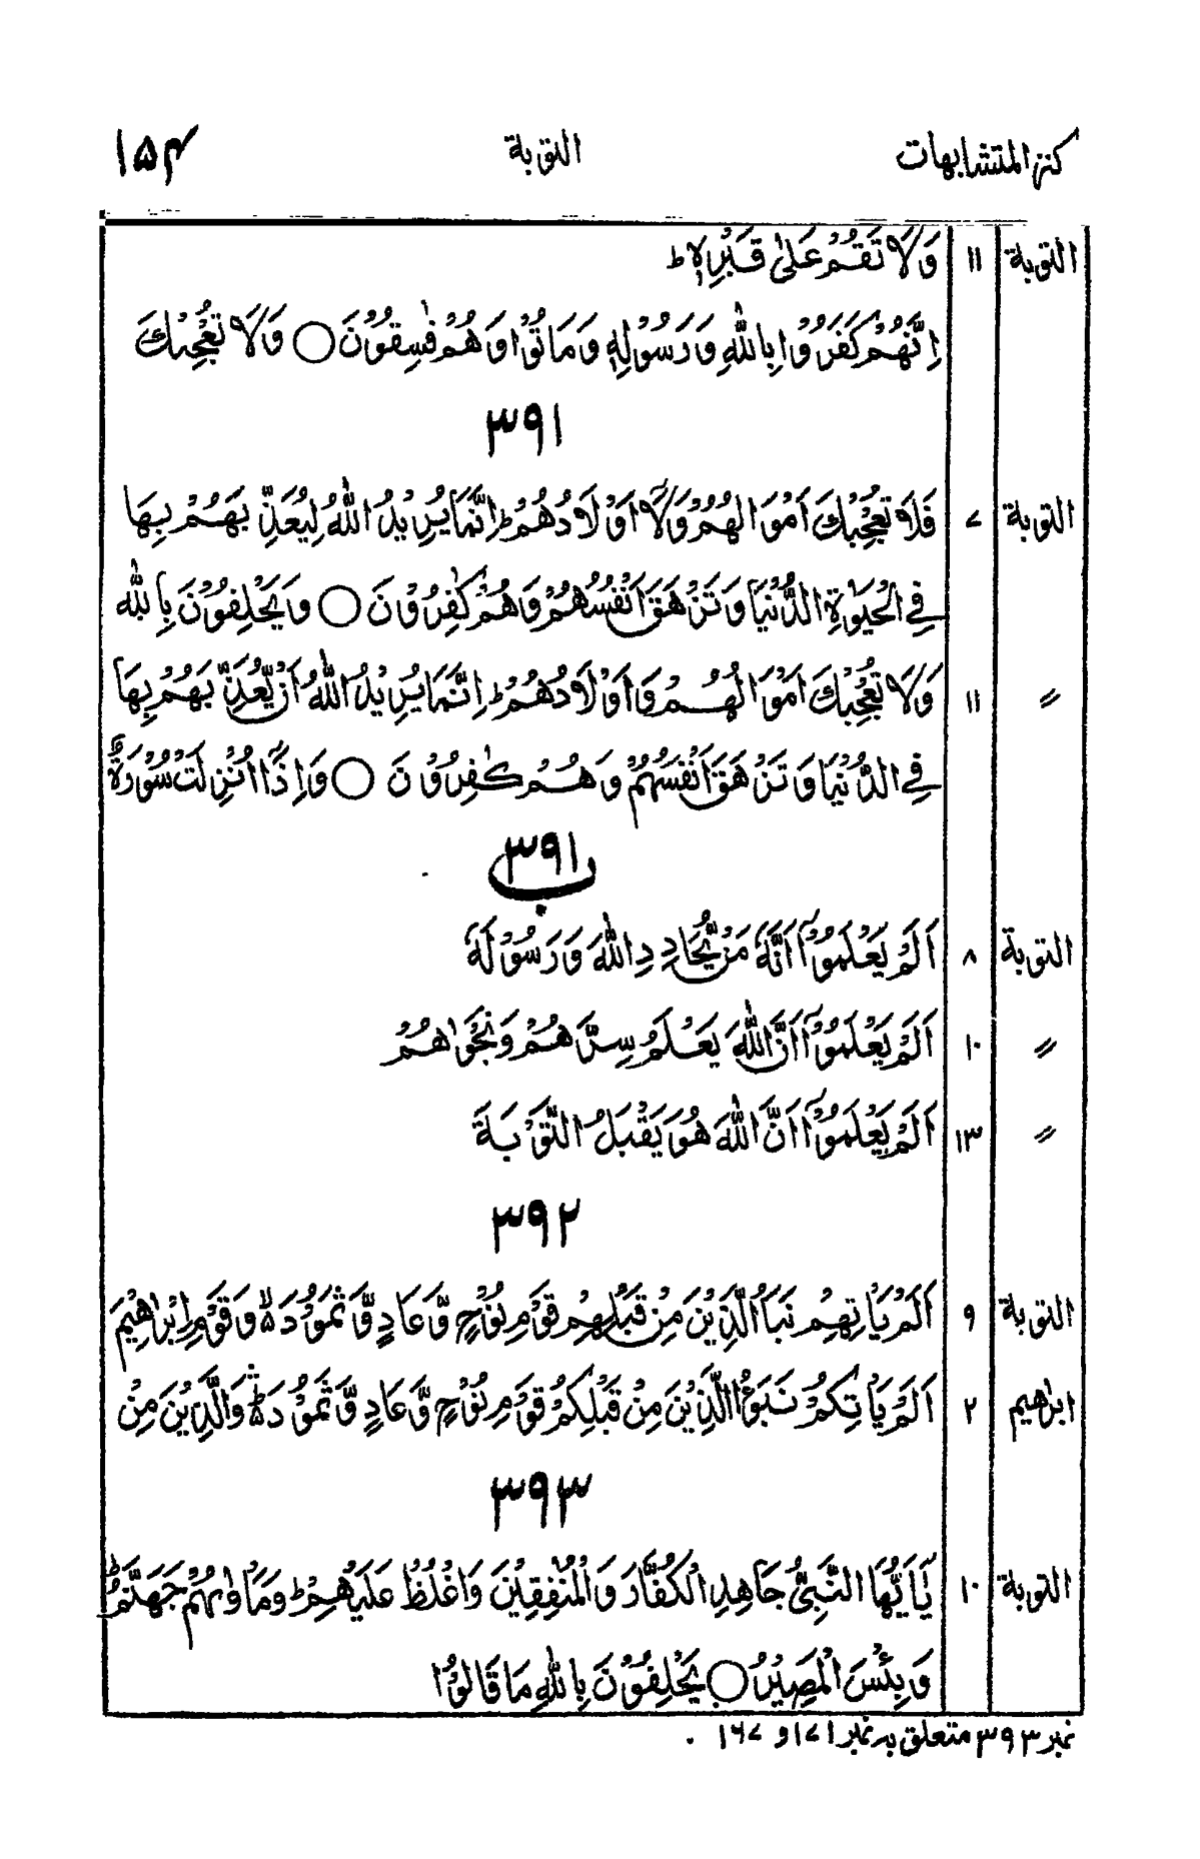 كنز المتشابهات التوبة ١٥٤
التوبة ١١ وَلَا تَقُمْ عَلٰى قَبْرِهٖ ط
اِنَّهُمْ كَفَرُوْا بِاللّٰهِ وَرَسُوْلِهٖ وَمَاتُوْا وَهُمْ فٰسِقُوْنَ ○ وَلَا تُعْجِبْكَ
٣٩١
التوبة ٧ فَلَا تُعْجِبْكَ اَمْوَالُهُمْ وَلَآ اَوْلَادُهُمْ ط اِنَّمَا يُرِيْدُ اللّٰهُ لِيُعَذِّبَهُمْ بِهَا
فِي الْحَيٰوةِ الدُّنْيَا وَتَزْهَقَ اَنْفُسُهُمْ وَهُمْ كٰفِرُوْنَ ○ وَيَحْلِفُوْنَ بِاللّٰهِ
〃 ١١ وَلَا تُعْجِبْكَ اَمْوَالُهُمْ وَاَوْلَادُهُمْ ط اِنَّمَا يُرِيْدُ اللّٰهُ اَنْ يُّعَذِّبَهُمْ بِهَا
فِي الدُّنْيَا وَتَزْهَقَ اَنْفُسُهُمْ وَهُمْ كٰفِرُوْنَ ○ وَاِذَآ اُنْزِلَتْ سُوْرَةٌ
٣٩١ ب
التوبة ٨ اَلَمْ يَعْلَمُوْٓا اَنَّهٗ مَنْ يُّحَادِدِ اللّٰهَ وَرَسُوْلَهٗ
〃 ١٠ اَلَمْ يَعْلَمُوْٓا اَنَّ اللّٰهَ يَعْلَمُ سِرَّهُمْ وَنَجْوٰىهُمْ
〃 ١٣ اَلَمْ يَعْلَمُوْٓا اَنَّ اللّٰهَ هُوَ يَقْبَلُ التَّوْبَةَ
٣٩٢
التوبة ٩ اَلَمْ يَاْتِهِمْ نَبَاُ الَّذِيْنَ مِنْ قَبْلِهِمْ قَوْمِ نُوْحٍ وَّعَادٍ وَّثَمُوْدَ ۙ وَقَوْمِ اِبْرٰهِيْمَ
ابرٰهيم ٢ اَلَمْ يَاْتِكُمْ نَبَؤُا الَّذِيْنَ مِنْ قَبْلِكُمْ قَوْمِ نُوْحٍ وَّعَادٍ وَّثَمُوْدَ ۛ وَالَّذِيْنَ مِنْ
٣٩٣
التوبة ١٠ يٰٓاَيُّهَا النَّبِيُّ جَاهِدِ الْكُفَّارَ وَالْمُنٰفِقِيْنَ وَاغْلُظْ عَلَيْهِمْ ط وَمَاْوٰىهُمْ جَهَنَّمُ ط
وَبِئْسَ الْمَصِيْرُ ○ يَحْلِفُوْنَ بِاللّٰهِ مَا قَالُوْا
نمبر ٣٩٣ متعلق بہ نمبر ١٧١ و ١٦٧ ۔